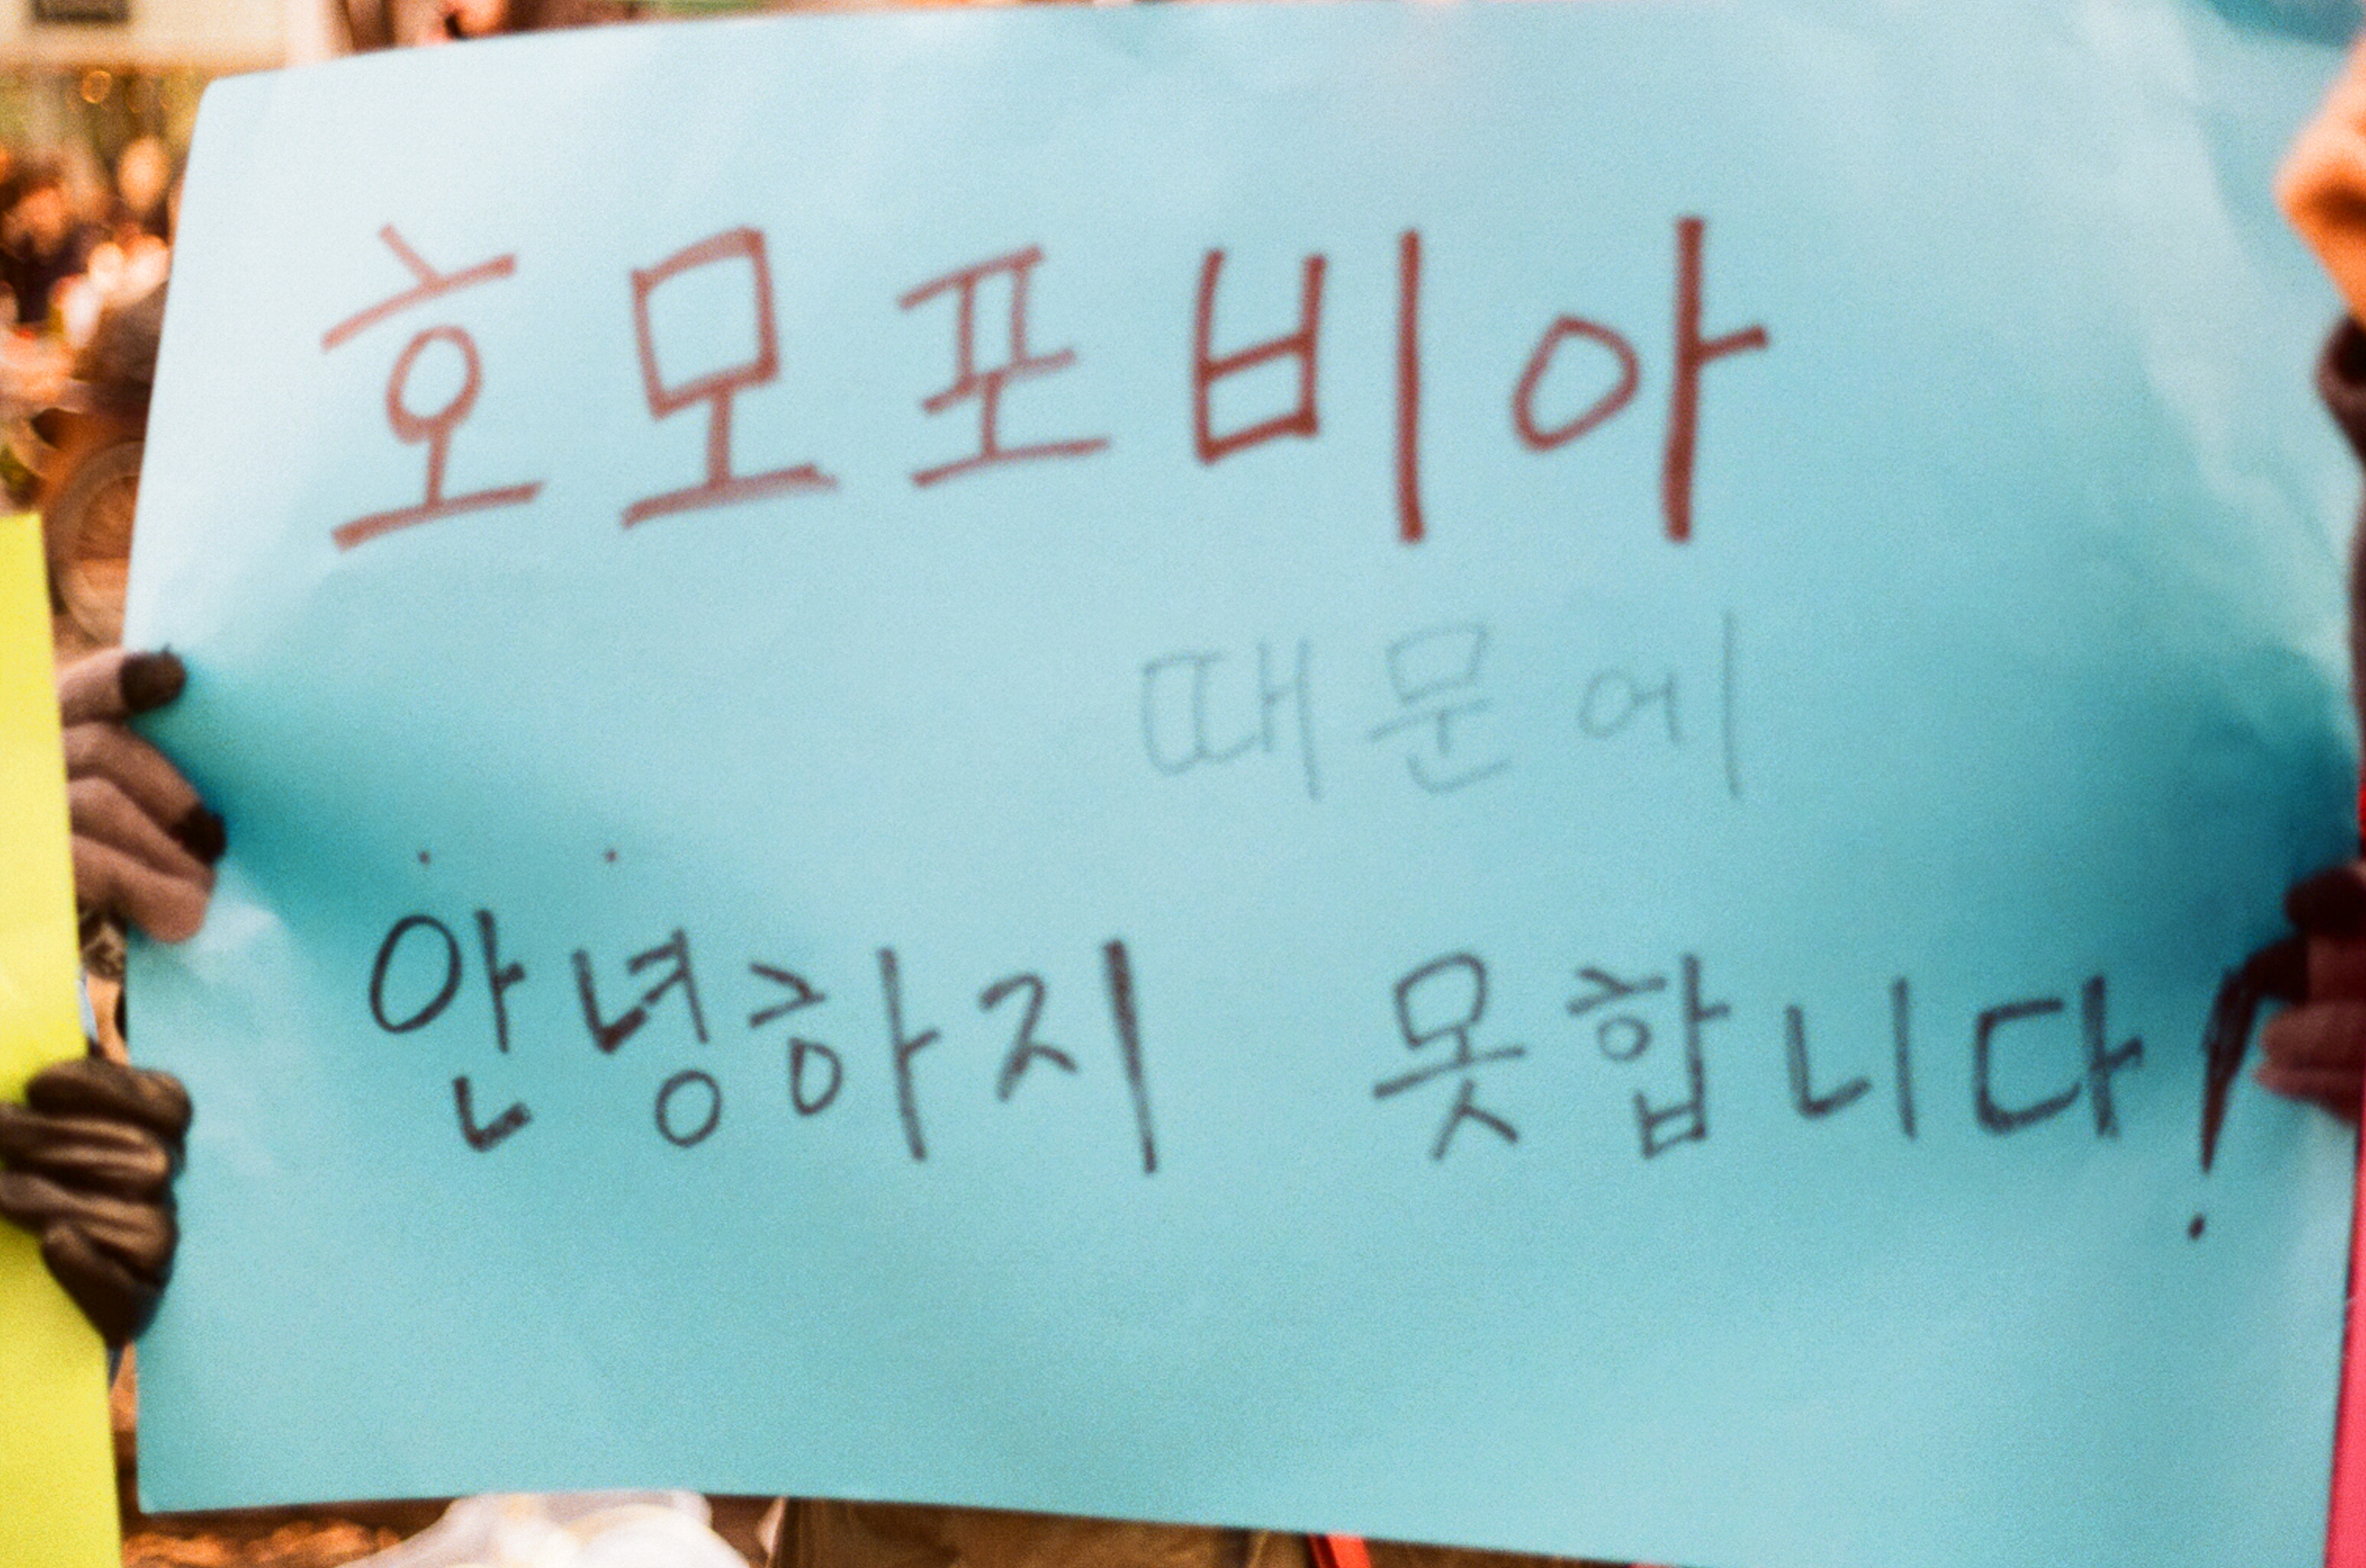 호모포비아
때문에
안녕하지 못합니다!